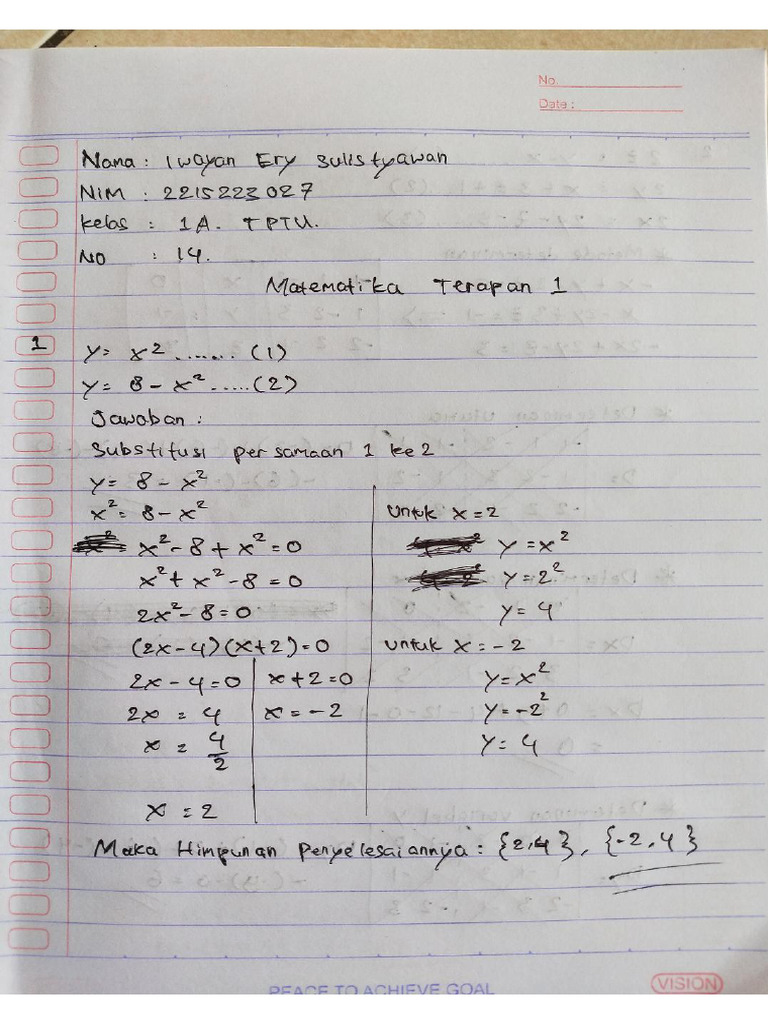 No.
Date :
Nama : I wayan Ery Sulistyawan
NIM : 2215223027
Kelas : 1A. TPTU.
NO : 14.
Matematika Terapan 1
1
y = x² ....... (1)
y = 8 - x² ..... (2)
Jawaban :
Substitusi persamaan 1 ke 2
y = 8 - x²
x² = 8 - x²
x² - 8 + x² = 0
x² + x² - 8 = 0
2x² - 8 = 0
(2x - 4)(x + 2) = 0
2x - 4 = 0 | x + 2 = 0
2x = 4 | x = -2
x = 4/2
x = 2
Untuk x = 2
y = x²
y = 2²
y = 4
Untuk x = -2
y = x²
y = -2²
y = 4
Maka Himpunan Penyelesaiannya : {2,4}, {-2,4}
PEACE TO ACHIEVE GOAL
VISION